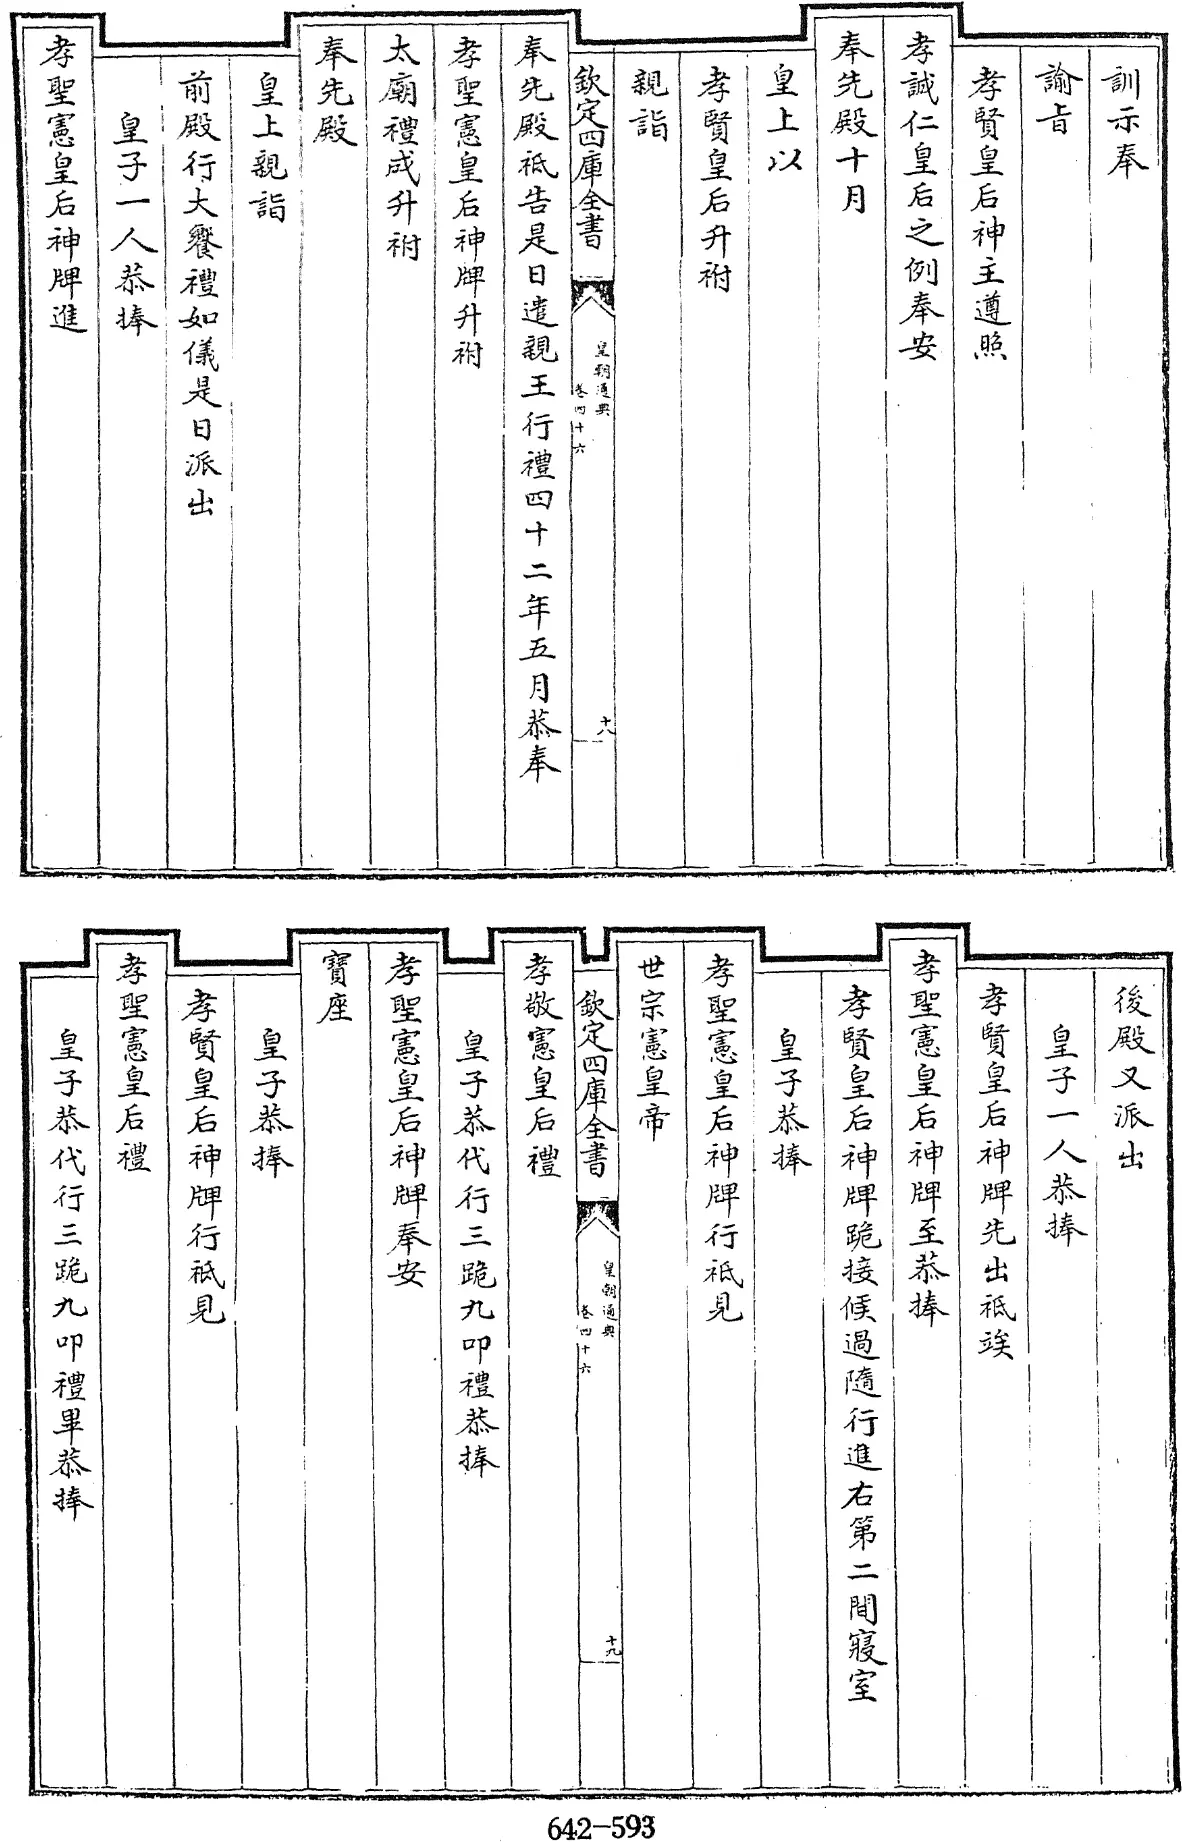 訓示奉
諭旨
孝賢皇后神主遵照
孝誠仁皇后之例奉安
奉先殿十月
皇上以
孝賢皇后升祔
親詣
欽定四庫全書
皇朝通典
卷四十六
十八
奉先殿祗告是日遣親王行禮四十二年五月恭奉
孝聖憲皇后神牌升祔
太廟禮成升祔
奉先殿
皇上親詣
前殿行大饗禮如儀是日派出
皇子一人恭捧
孝聖憲皇后神牌進
後殿又派出
皇子一人恭捧
孝賢皇后神牌先出祗竢
孝聖憲皇后神牌至恭捧
孝賢皇后神牌跪接候過隨行進右第二間寢室
皇子恭捧
孝聖憲皇后神牌行祗見
世宗憲皇帝
欽定四庫全書
皇朝通典
卷四十六
十九
孝敬憲皇后禮
皇子恭代行三跪九叩禮恭捧
孝聖憲皇后神牌奉安
寶座
皇子恭捧
孝賢皇后神牌行祗見
孝聖憲皇后禮
皇子恭代行三跪九叩禮畢恭捧
642-593